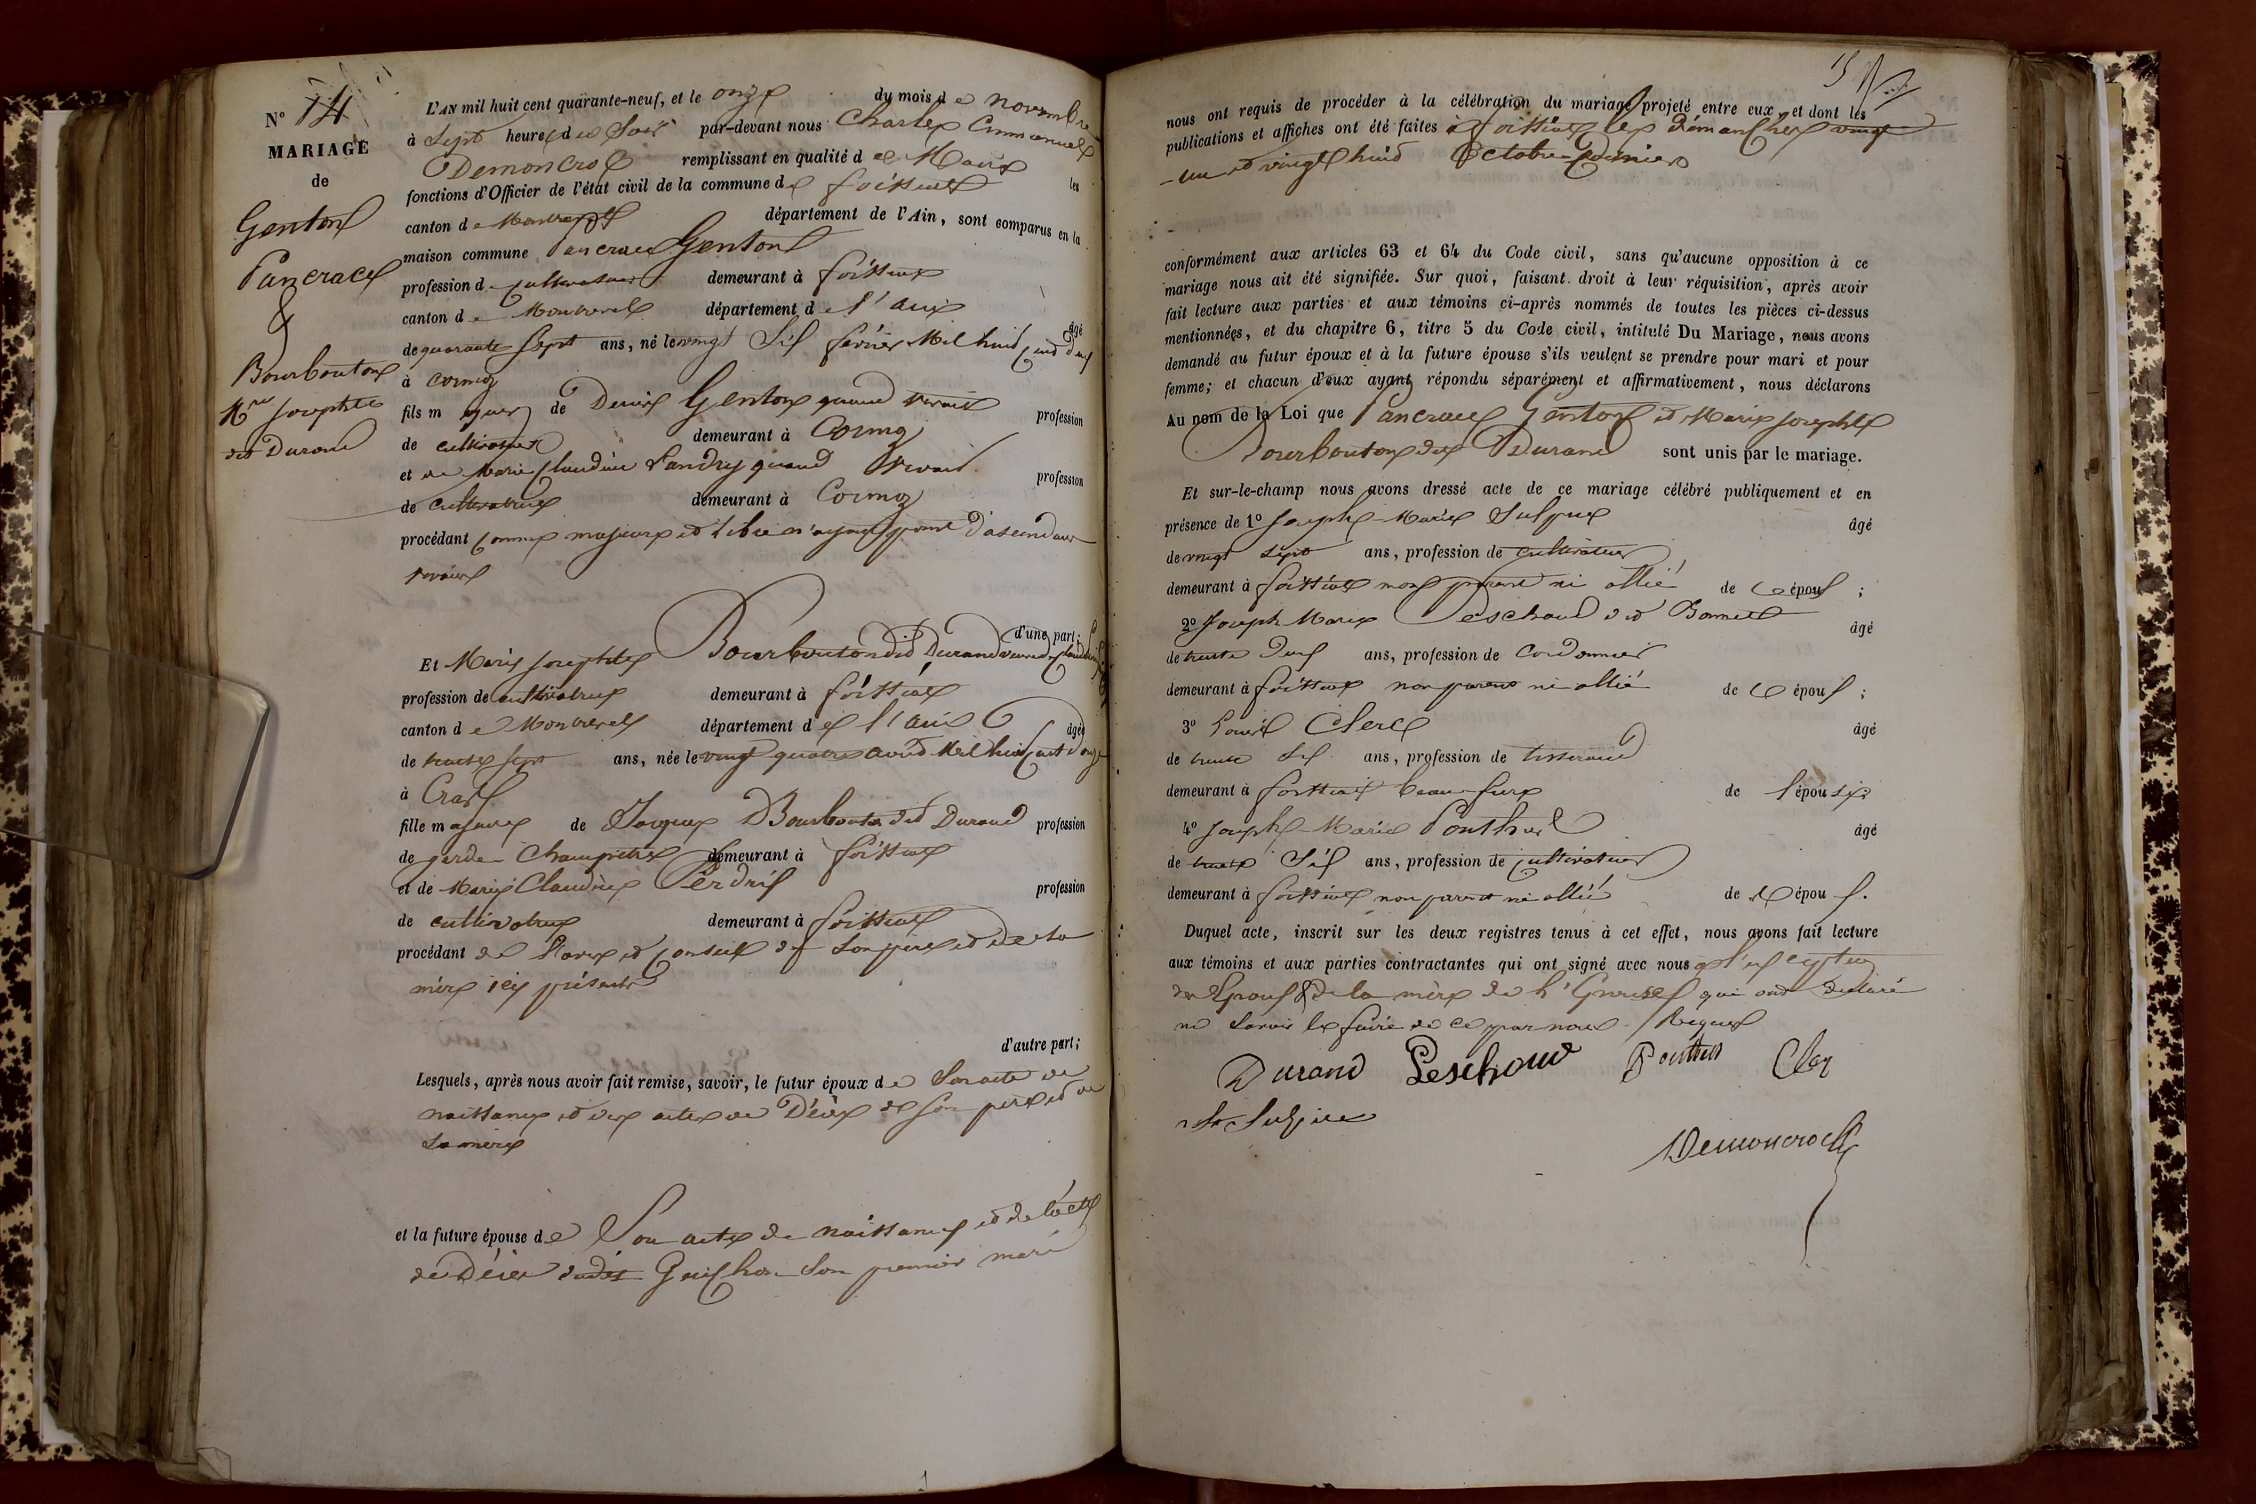 N° 14
MARIAGE
de
Genton
Pancrace
&
Bourbouton
Mie Josephte
dit Durand
L'AN mil huit cent quarante-neuf, et le onze du mois de novembre
à Sept heures du Soir par-devant nous Charles Emmanuel
Demoncroc remplissant en qualité de Maire les
fonctions d'Officier de l'état civil de la commune de foissiat
canton de Montrevel département de l'Ain, sont comparus en la
maison commune Pancrace Genton
profession de cultivateur demeurant à foissiat
canton de Montrevel département de l'ain
âgé
de quarante Sept ans, né le vingt Six février Mil huit cent deux
à Cormoz
fils majeur de Denis Genton quand vivait profession
de cultivateur demeurant à Cormoz
et de Marie Claudine Landry quand vivait profession
de cultivatrice demeurant à Cormoz
procédant comme majeur et libre n'ayant point d'ascendant
vivant
d'une part;
Et Marie Josephte Bourbouton dit Durand veuve de Claude
profession de cultivatrice demeurant à foissiat
canton de Montrevel département de l'ain âgée
de trente sept ans, née le vingt quatre avril Mil huit cent douze
à Cras
fille majeure de Jacques Bourbouton dit Durand profession
de garde Champêtre demeurant à foissiat
et de Marie Claudine Perdrix profession
de cultivatrice demeurant à foissiat
procédant de l'avis et conseil de son père et de sa
mère icy présents
d'autre part;
Lesquels, après nous avoir fait remise, savoir, le futur époux de Son acte de
naissance et des actes de Décès de son père et de
sa mère
et la future épouse de Son acte de naissance et de l'acte
de Décès dudit Guichon son premier mari
15
nous ont requis de procéder à la célébration du mariage projeté entre eux, et dont les
publications et affiches ont été faites à foissiat les Dimanches vingt
-un et vingt huit Octobre dernier
conformément aux articles 63 et 64 du Code civil, sans qu'aucune opposition à ce
mariage nous ait été signifiée. Sur quoi, faisant droit à leur réquisition, après avoir
fait lecture aux parties et aux témoins ci-après nommés de toutes les pièces ci-dessus
mentionnées, et du chapitre 6, titre 5 du Code civil, intitulé Du Mariage, nous avons
demandé au futur époux et à la future épouse s'ils veulent se prendre pour mari et pour
femme; et chacun d'eux ayant répondu séparément et affirmativement, nous déclarons
Au nom de la Loi que Pancrace Genton et Marie Josephte
Bourbouton dit Durand sont unis par le mariage.
Et sur-le-champ nous avons dressé acte de ce mariage célébré publiquement et en
présence de 1° Joseph Marie Sulpice âgé
de vingt sept ans, profession de cultivateur
demeurant à foissiat non parent ni allié de l'époux;
2° Joseph Marie Peschoud dit Bonnet âgé
de trente deux ans, profession de Cordonnier
demeurant à foissiat non parent ni allié de l'époux;
3° Louis Clerc âgé
de trente Six ans, profession de tisserand
demeurant à foissiat beau-frère de l'épouse;
4° Joseph Marie Ponthus âgé
de trente Six ans, profession de cultivateur
demeurant à foissiat non parent ni allié de l'époux.
Duquel acte, inscrit sur les deux registres tenus à cet effet, nous avons fait lecture
aux témoins et aux parties contractantes qui ont signé avec nous à l'exception
des Epoux & de la mère de l'Epouse qui ont déclaré
ne Savoir le faire de ce par nous Requis
Durand Peschoud Ponthus Clerc
Sulpice
Demoncroc